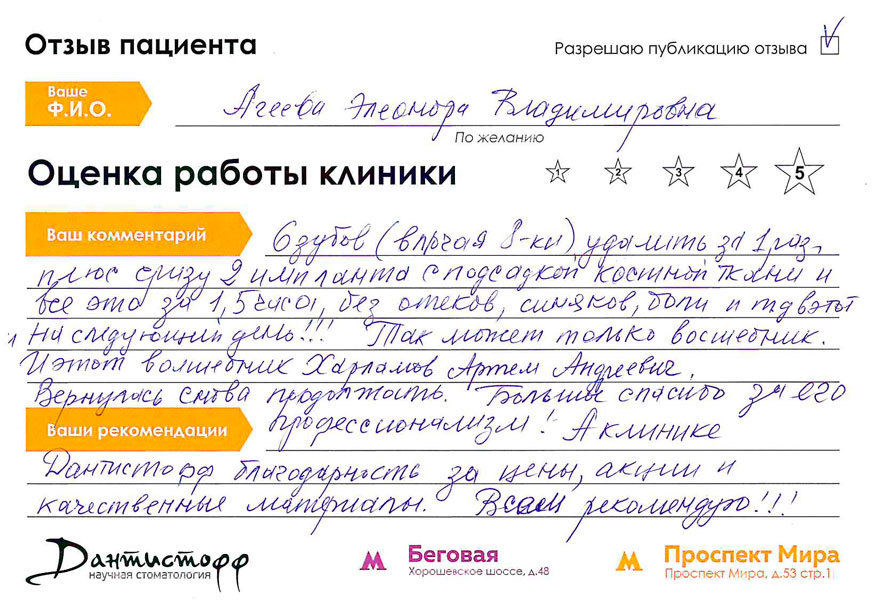 Отзыв пациента
Разрешаю публикацию отзыва
Ваше
Ф.И.О.
Агеева Элеонора Владимировна
По желанию
Оценка работы клиники
1 2 3 4 5
Ваш комментарий
6 зубов (вкл­ючая 8-ки) удалить за 1 раз,
плюс сразу 2 импланта с подсадкой костной ткани и
все это за 1,5 часа, без отеков, синяков, боли и тд в этот
и на следующий день!!! Так может только восшебник.
И этот волшебник Харламов Артем Андреевич.
Вернулась снова продолжать. Большое спасибо за его
Ваши рекомендации
профессионализм! А клинике
Дантистофф благодарность за цены, акции и
качественные материалы. Всем рекомендую!!!
Дантистофф
научная стоматология
Беговая
Хорошевское шоссе, д.48
Проспект Мира
Проспект Мира, д.53 стр.1